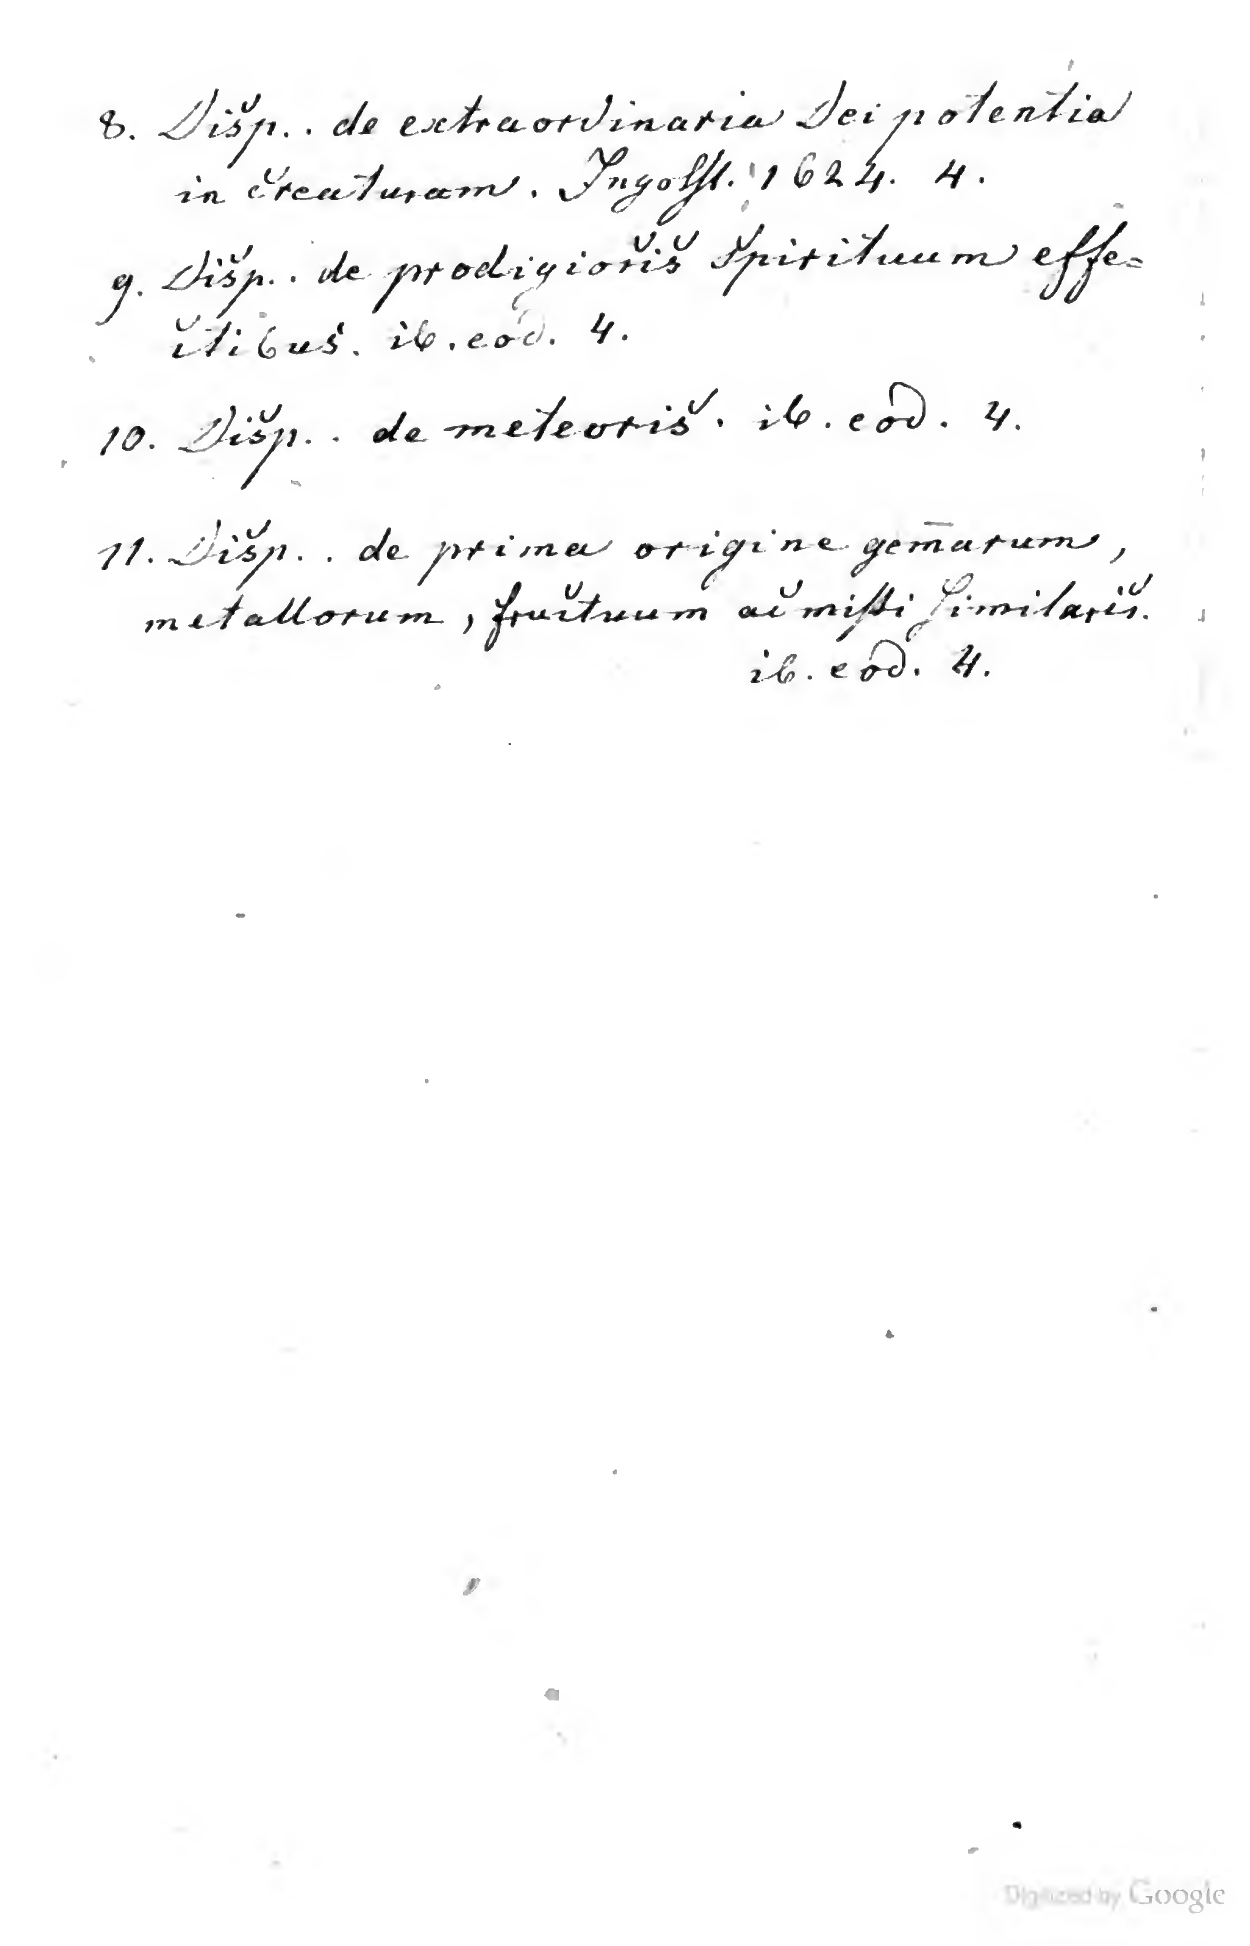 8. Disp.. de extraordinaria Dei potentia
in creaturam. Ingolst. 1624. 4.
9. Disp.. de prodigiosis spirituum effe=
ctibus. ib. eod. 4.
10. Disp.. de meteoris. ib. eod. 4.
11. Disp.. de prima origine gem̄arum,
metallorum, fructuum ac missi similaris.
ib. eod. 4.
Digitized by Google